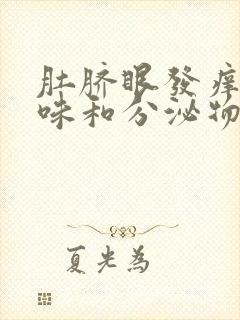 肚脐眼發痒
味和分泌物
夏光為